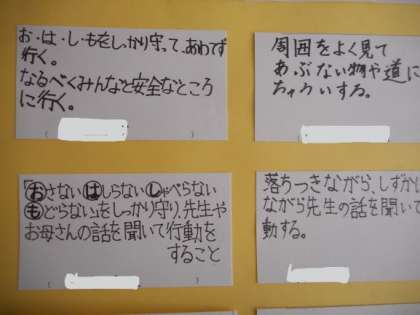 お・は・し・もをしっかり守って、あわず
行く。
なるべくみんなと安全なところ
に行く。
周囲をよく見て
あぶない物や道に
ちゅういする。
「おさない はしらない しゃべらない
もどらない」をしっかり守り、先生や
お母さんの話を聞いて行動を
すること
落ちつきながら、しずかに
ながら先生の話を聞いて
動する。